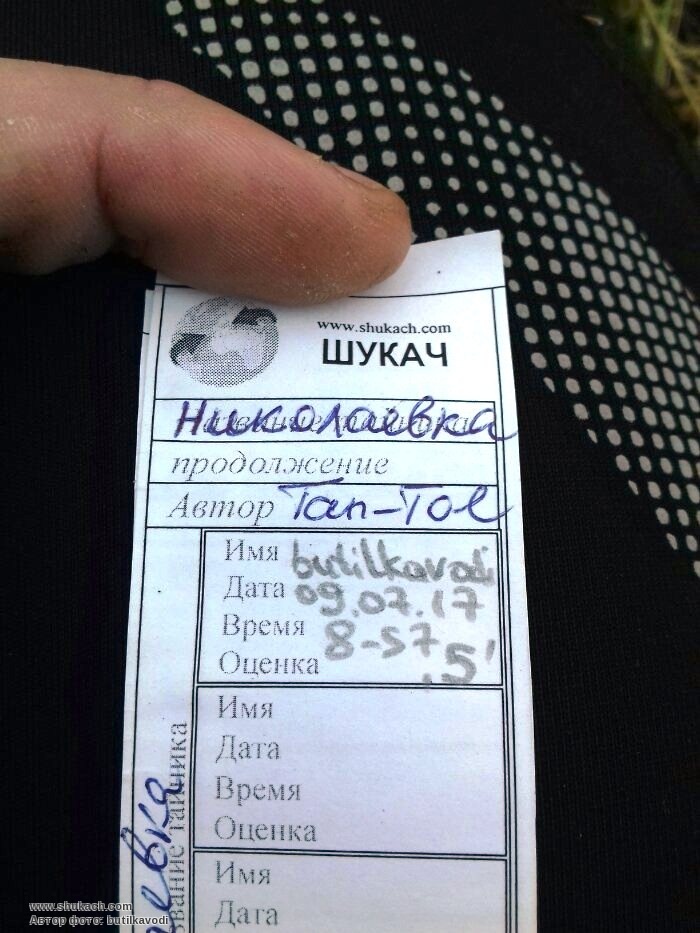 www.shukach.com
ШУКАЧ
Николаевка
продолжение
Автор Tan-Tol
Имя butilkavodi
Дата 09.07.17
Время 8-57
Оценка .5'
Имя
Дата
Время
Оценка
Имя
Дата
www.shukach.com
Автор фото: butilkavodi